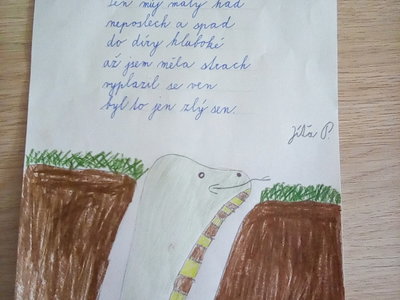 Ten můj malý had
neposlech a spad
do díry hluboké
až jsem měla strach
vyplazil se ven
byl to jen zlý sen.
Jíťa P.